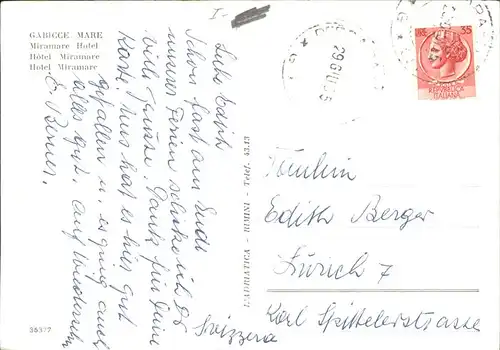 GABICCE - MARE
Miramare Hotel
Hôtel Miramare
Hotel Miramare
I.
Liebe Edith
Schon fast am Ende
unserer Ferien schicke ich Dir
viele Grüsse. Dank für Deine
Karte. Uns hat es hier gut
gefallen u. es ging auch
alles gut. Auf Wiedersehn
E. Berner.
35377
CARTABIATICA - RIMINI - TEL.
LIRE 35
REPUBBLICA
ITALIANA
Fräulein
Edith Berger
Zürich 7
Karl Spittelerstrasse
Svizzera